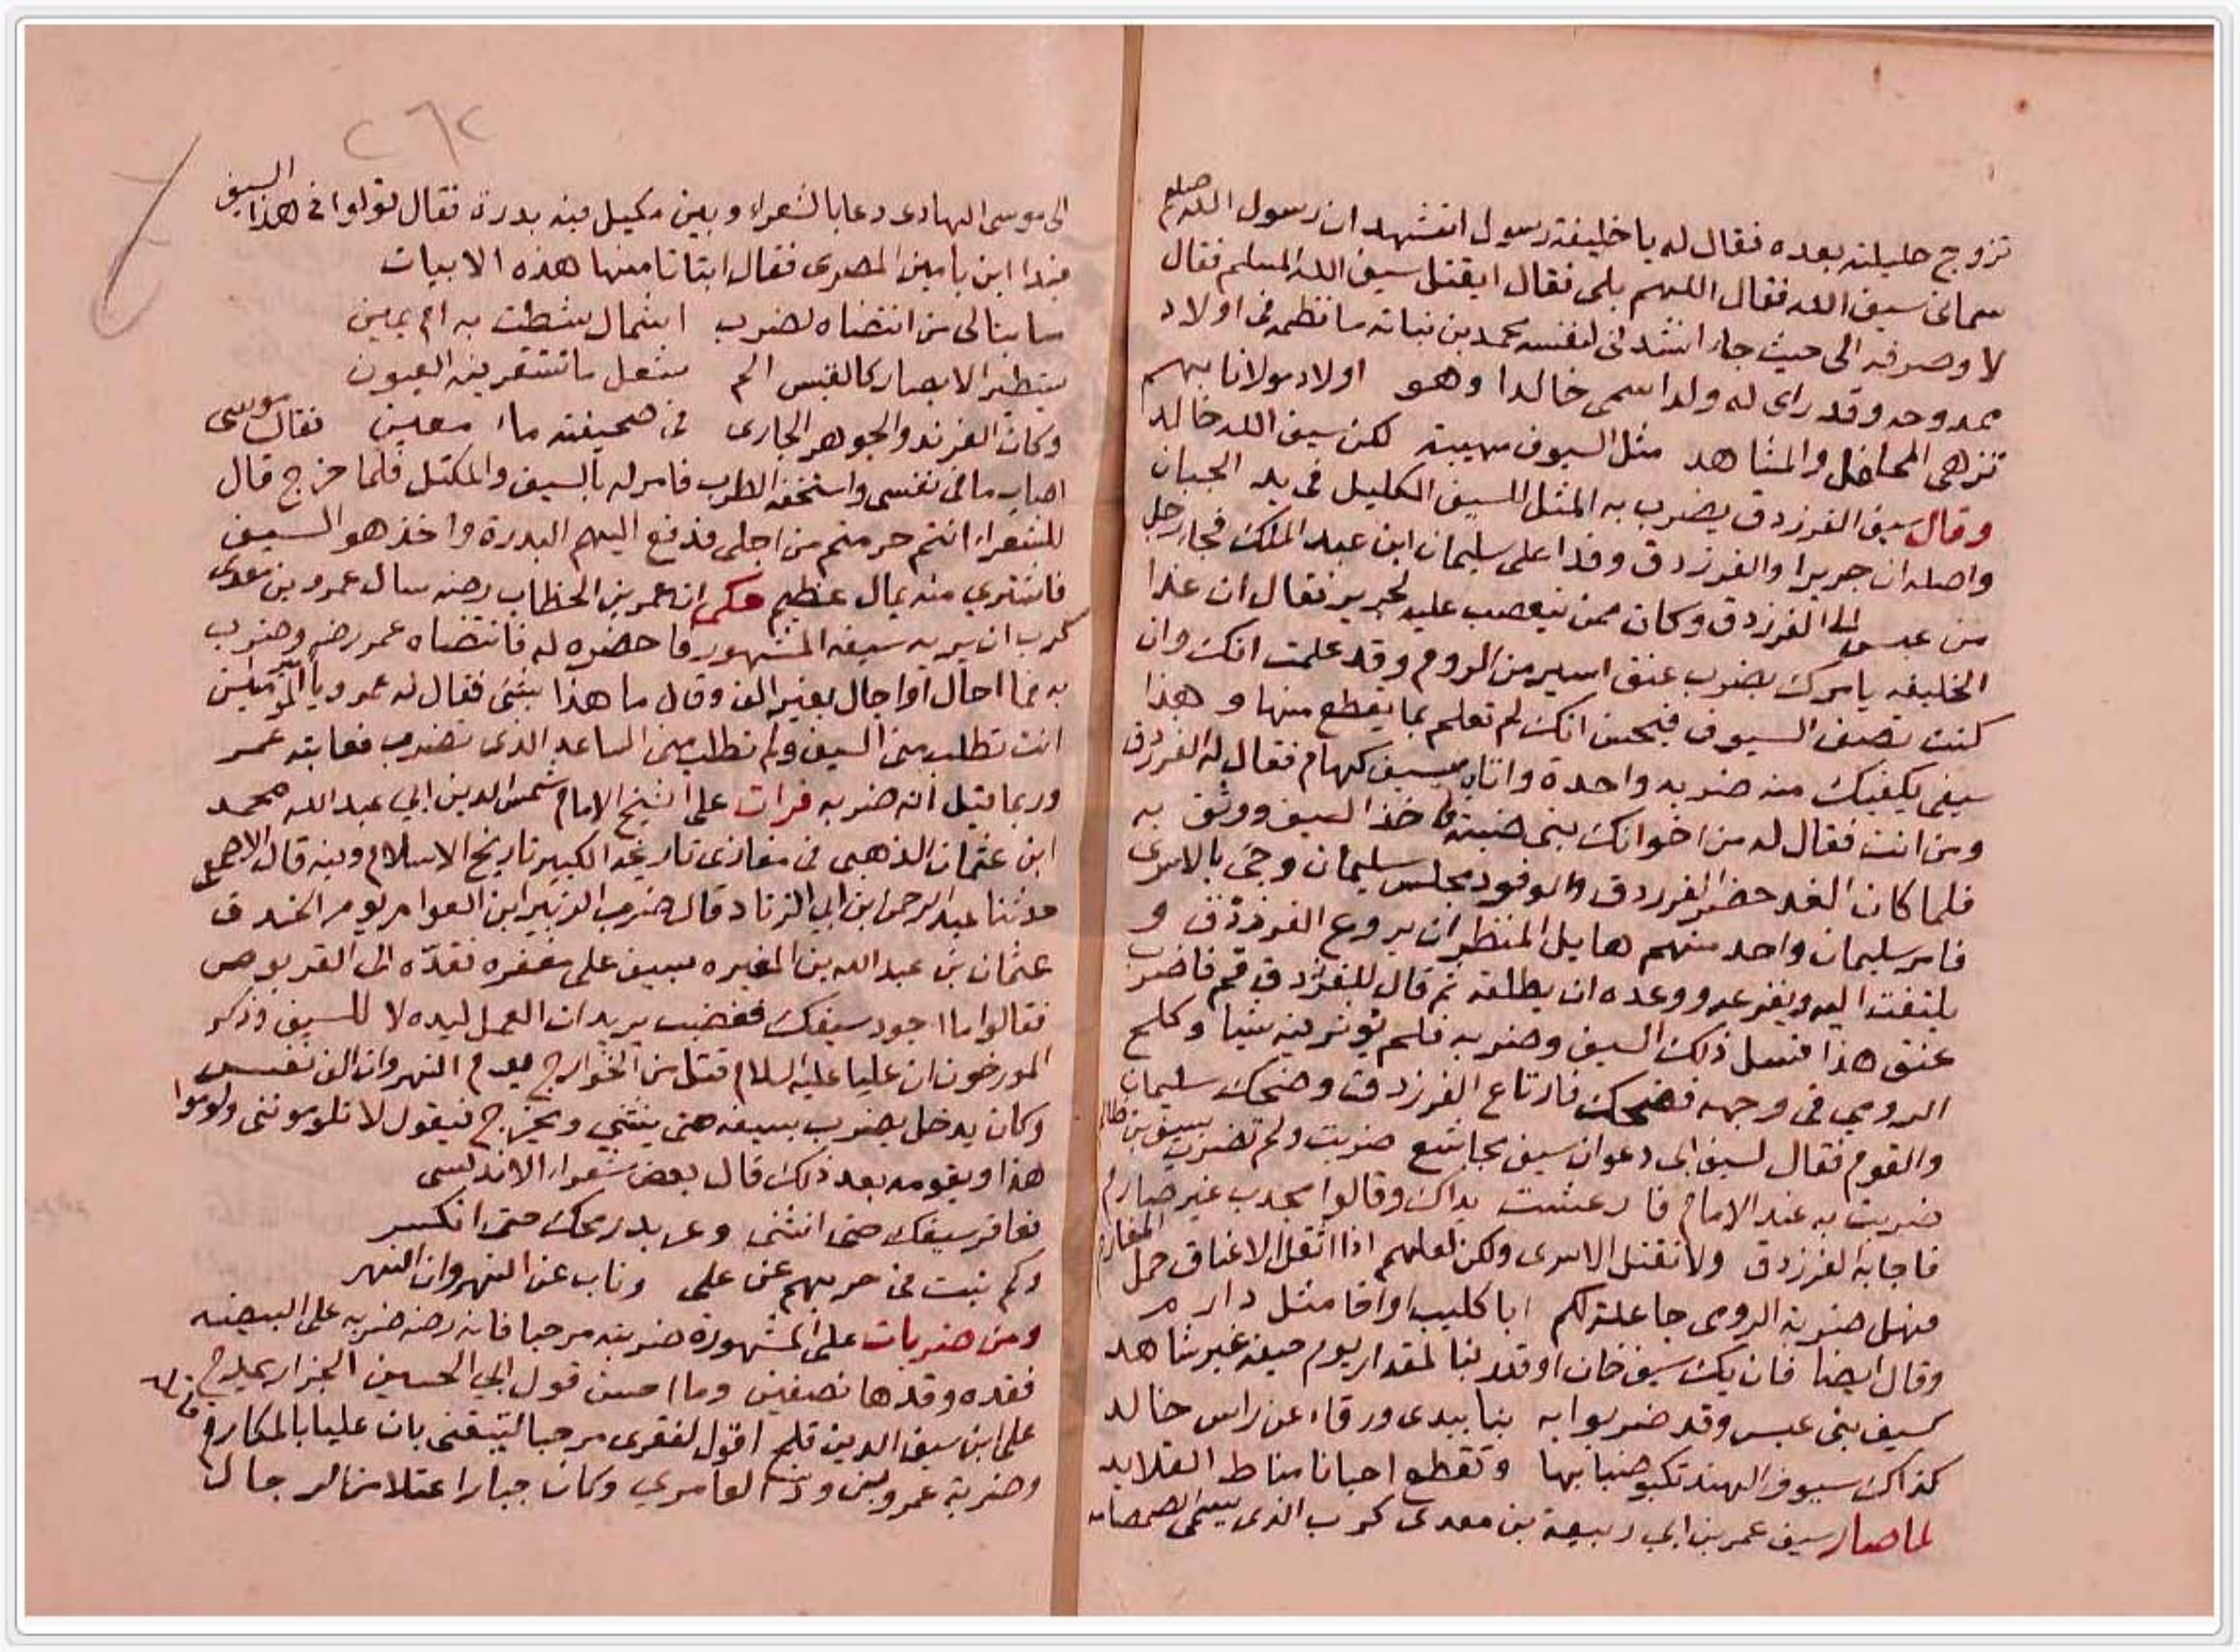 تزوج حليلته بعده فقال له يا خليفة رسول اتشهد ان رسول الله صلعم
سماني سيف الله فقال اللهم بلى فقال ايقتل سيف الله المسلم فقال
لا وصرفه الى حيث جاء انشدني لنفسه محمد بن نباته ما نظمه في اولاد
ممدوحه وقد راى له ولدا سمى خالدا وهو اولاد مولانا بهم
تزهى المحافل والمشاهد مثل السيوف مهيبة لكن سيف الله خالد
وقال سيف الفرزدق يضرب به المثل للسيف الكليل في يد الجبان
واصله ان جريرا والفرزدق وفدا على سليمان ابن عبد الملك فجاء رجل
من عبس الى الفرزدق وكان ممن يتعصب عليه لجرير فقال ان غدا
الخليفه يامرك بضرب عنق اسير من الروم وقد علمت انك وان
كنت تصف السيوف فيحسن انك لم تعلم بما يقطع منها و هذا
سيفي يكفيك منه ضربه واحدة واتاه بسيف كهام فقال له الفرزدق
ومن انت فقال له من اخوانك بني ضبة فاخذ السيف ووثق به
فلما كان الغد حضر الفرزدق والوفود مجلس سليمان وجئ بالاسرى
فامر سليمان واحد منهم هايل المنظر ان يروع الفرزدق و
يلتفت اليه ويفزعه ووعده ان يطلقه ثم قال للفرزدق قم فاضرب
عنق هذا فسل ذلك السيف وضربه فلم يوثر فيه شيا وكلح
الرومي في وجهه فضحك فارتاع الفرزدق وضحك سليمان
والقوم فقال لسيف ابى دعوان سيف مجاشع ضربت ولم تضرب بسيف بن ظالم
ضربت به عند الامام فارعشت يداك وقالوا محدب غير صارم
فاجابه الفرزدق ولا نقتل الاسرى ولكن لعلهم اذا اثقل الاعناق حمل المغارم
فهل ضربة الرومي جاعلة لكم ابا كليب او اخا مثل دارم
وقال ايضا فان يك سيف خان او قدر نبا لمقدار يوم حيفه غير شاهد
كسيف بني عبس وقد ضربوا به نبا بيدي ورقاء عن راس خالد
كذاك سيوف الهند تكبو ضبابها وتقطع احيانا مناط القلايد
لما صار سيف عمر بن ابي ربيعة بن معدى كرب الذي يسمى الصمصامه
٢٦٢
الى موسى الهادى دعا بالشعراء وبين مكيل فيه بدرة فقال قولوا في هذا السيف
فبدا ابن يامين المصرى فقال ابتاتا منها هذه الابيات
ما يبالى من انتضاه لضرب اشمال سطت به ام يمين
يستطير الابصار كالقبس الم شعل ما تستقر فيه العيون
وكان الفرند والجوهر الجارى في صحيفته ماء معين فقال موسى
اصاب ما في نفسى واستخفه الطرب فامر له بالسيف والمكتل فلما خرج قال
للشعراء انتم حرمتم من اجلى فدفع اليهم البدرة واخذ هو السيف
فاشتري منه بمال عظيم حكى ان عمر بن الخطاب رضه سال عمرو بن معدى
كرب ان يريه سيفه المشهور فاحضره له فانتضاه عمر رضه وضرب
به فما احال او اجال بعير الف وقال ما هذا بشئ فقال له عمرو يا امير المؤمنين
انت تطلب منى السيف ولم تطلب منى الساعد الذى تضرب فعاتبه عمر
وربما قيل انه ضربه قرات على الشيخ الامام شمس الدين ابي عبد الله محمد
ابن عثمان الذهبى في مغازى تاريخه الكبير تاريخ الاسلام وفيه قال الاصمعى
حدثنا عبد الرحمن ابن ابي الزناد قال ضرب الزبير ابن العوام يوم الخندق
عثمان بن عبد الله بن المغيره بسيف على مغفره فقدّه الى القربوص
فقالوا ما اجود سيفك فغضب يريد ان العمل ليده لا للسيف وذكر
المورخون ان عليا عليه السلام قتل من الخوارج يوم النهروان الف نفس
وكان يدخل يضرب بسيفه حتى ينثني ويخرج فيقول لا تلوموننى ولوموا
هذا ويقومه بعد ذلك قال بعض شعراء الاندلسى
فعاقر سيفك حتى انثنى وعربد رمحك حتى انكسر
وكم نبت في حربهم عن على وناب عن النهروان النهر
ومن ضربات على المشهورة ضربته مرحبا فانه رضه ضربه على البيضه
فقده وقدها نصفين وما احسن قول ابي الحسين الجزار يمدح
على ابن سيف الدين قلم اقول لفقرى مرحبا لتيقنى بان عليا بالمكارم قاتله
وضربة عمرو بن ود العامري وكان جبارا عتلا من الرجال